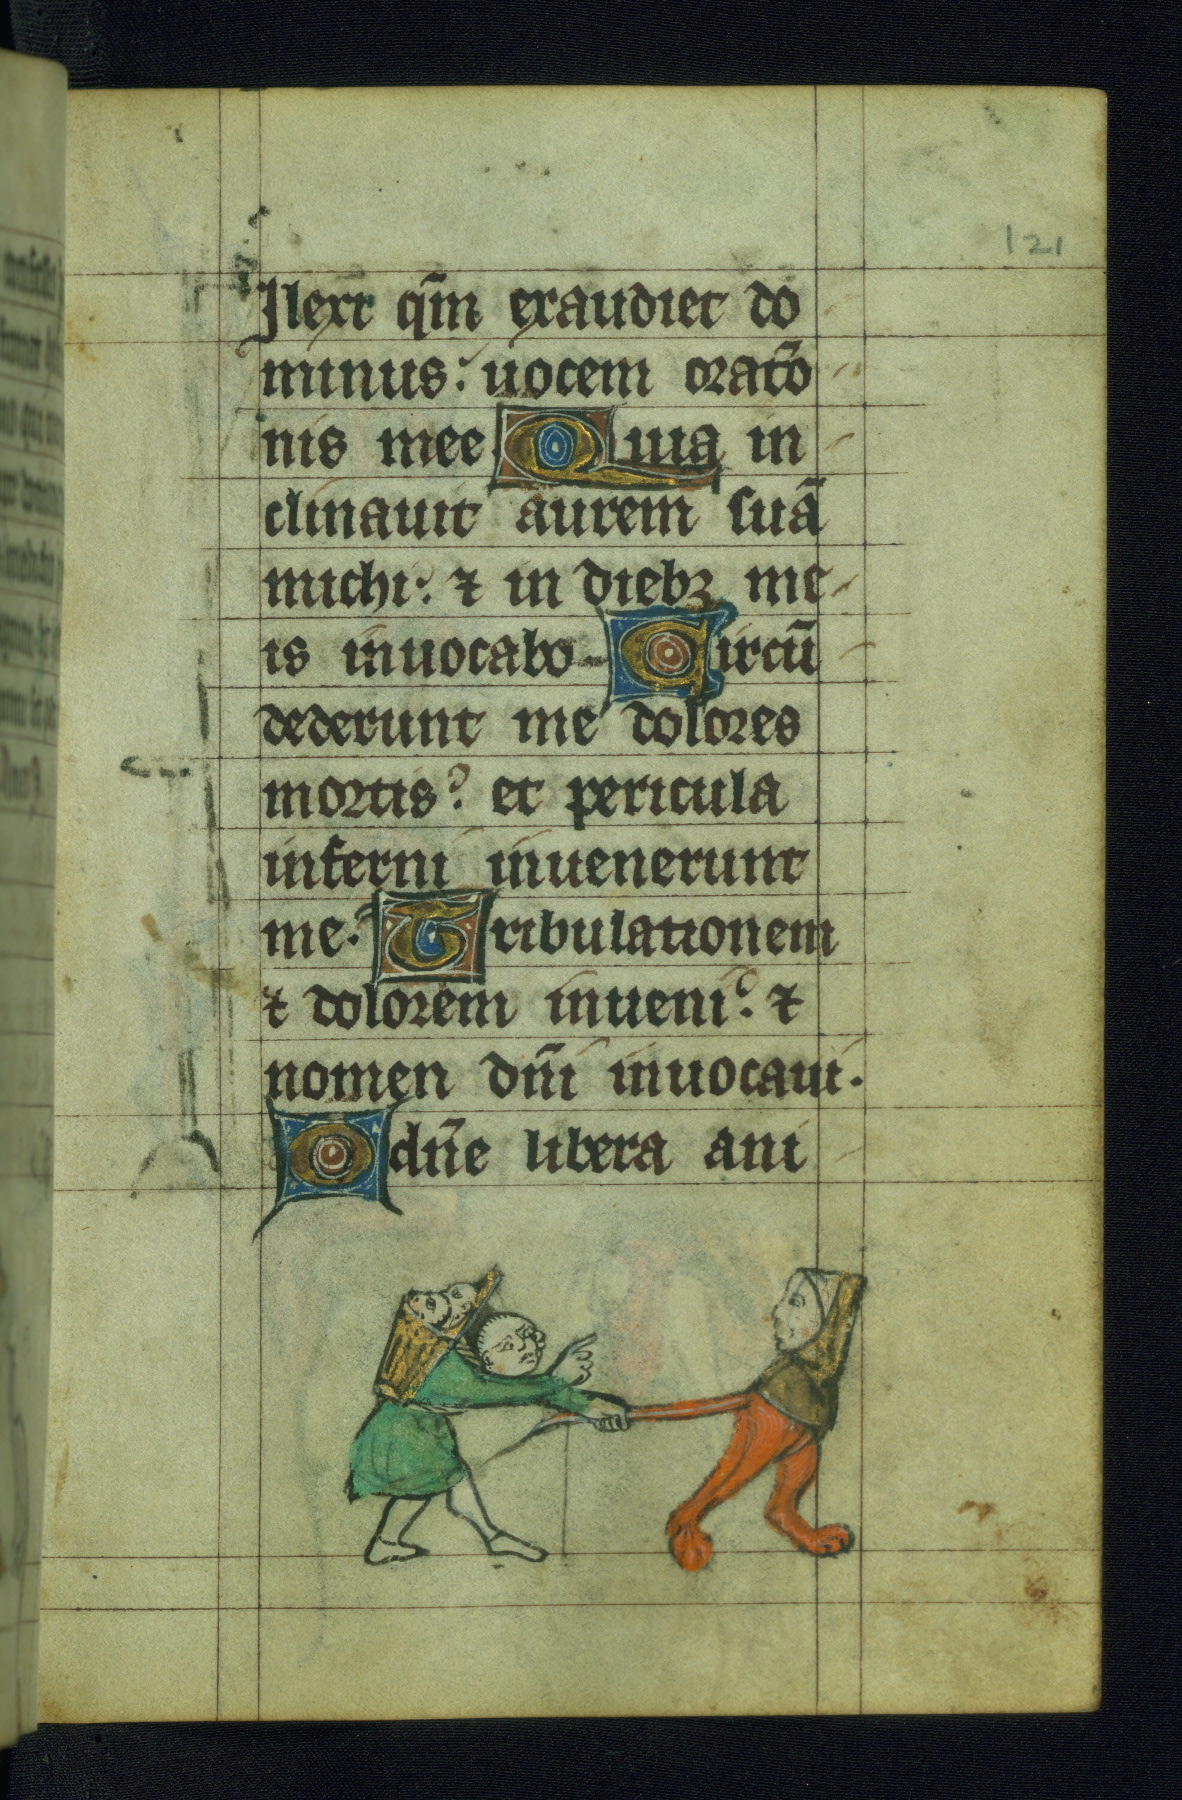 121
Ilexi q̄m exaudiet do
minus: uocem orac̄o
nis mee Quia in
clinauit aurem suā
michi: ⁊ in dieb; me
is inuocabo Circū
dederunt me dolores
mortis: et pericula
inferni inuenerunt
me. Tribulationem
⁊ dolorem inueni: ⁊
nomen dn̄i inuocaui.
O dn̄e libera ani